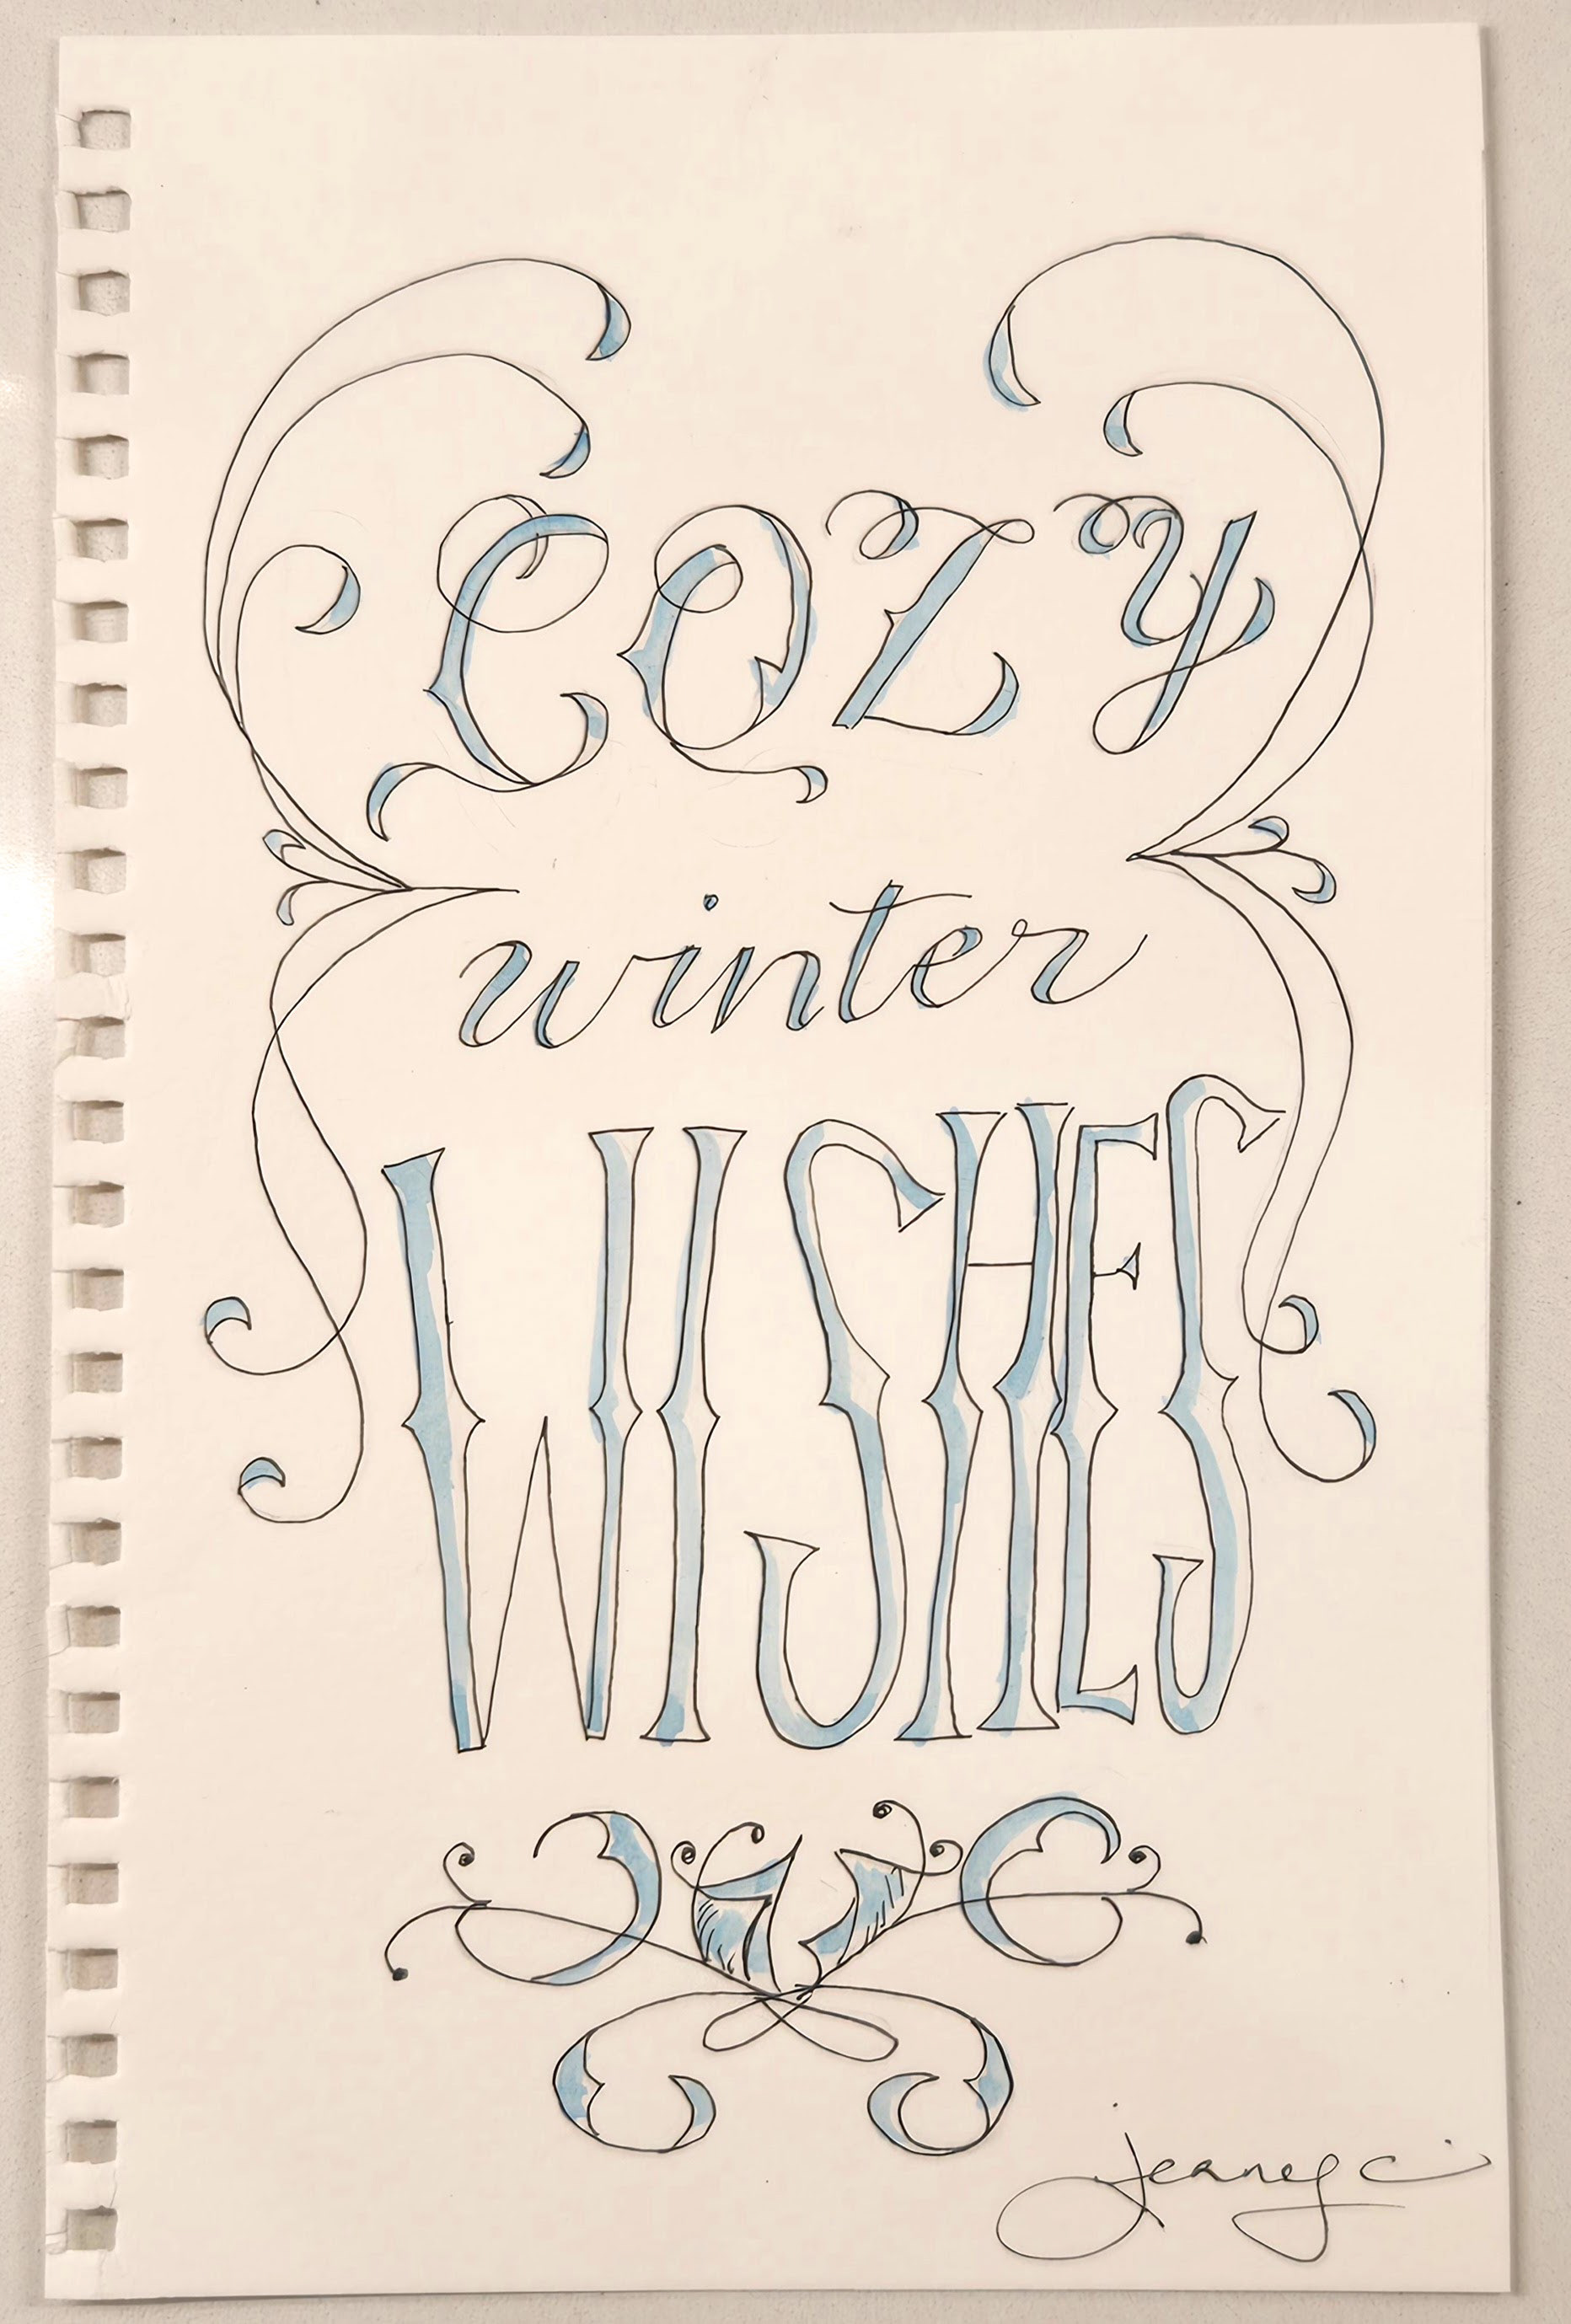 COZY
winter
WISHES
jeaney c